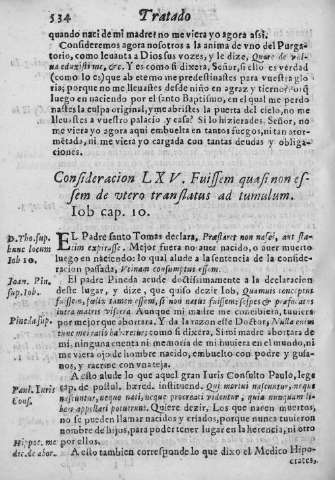 534 Tratado
quando nací de mi madre? no me viera yo agora assi.
Consideremos agora nosotros a la anima de vno del Purga-
torio, como leuanta a Dios sus vozes, y le dize, Quare de vul-
ua eduxisti me, &c. Y es como si dixera, Señor, si ello es verdad
(como lo es) que ab eterno me predestinastes para vuestra glo
ria; porque no me lleuastes desde niño en agraz y tierno? o q̃
luego en naciendo por el santo Baptismo, en el qual me perdo
nastes la culpa original, y me abristes la puerta del cielo, no me
lleuastes a vuestro palacio y casa? Si lo hizierades. Señor, no
me viera yo agora aqui embuelta en tantos fuegos, ni tan ator-
mētada, ni me viera yo cargada con tantas deudas y obliga-
ciones.
Consideracion LXV. Fuissem quasi non es-
sem de vtero translatus ad tumulum.
Iob cap. 10.
D. Tho. sup.
hunc locum
Iob 10.
EL Padre santo Tomas declara, Præstaret non nasci, aut sta-
tim expirasse. Mejor fuera no auer nacido, o auer muerto
luego en naciendo: lo qual alude a la sentencia de la conside-
racion passada, Vtinam consumptus essem.
Ioan. Pin.
sup. Iob.
El padre Pineda acude doctissimamente a la declaracion
deste lugar, y dize, que quiso dezir Iob, Quamuis conceptus
fuissem, fœlix tamen essem, si non natus fuissem:
intra matris viscera. Aunque mi madre me concibiera, tuuiera
Pineda sup.
por mejor que abortara. Y da la razon este Doctor, Nulla enim
tunc mei ratio haberetur; como si dixera, Si mi madre abortara de
mi, ninguna cuenta ni memoria de mi huuiera en el mundo, ni
me viera oy de hombre nacido, embuelto con podre y gusa-
nos, y raerme con vna teja.
A esto alude lo que aquel gran Iuris Consulto Paulo, lege
Paul. Iuris
Cons.
cap. de postul. hæred. instituend. Qui mortui nascuntur, neque
nascuntur, neque nati, neque procreati videntur, quia nunquam li-
beri appellari potuerunt. Quiere dezir, Los que nacen muertos,
no se pueden llamar nacidos y criados, porque nunca tuuieron
nombre de hijos, para poder tener lugar en la herencia, ni otro
Hippoc. me
dic. de abor.
por ellos.
A esto tambien corresponde lo que dixo el Medico Hipo-
crates,